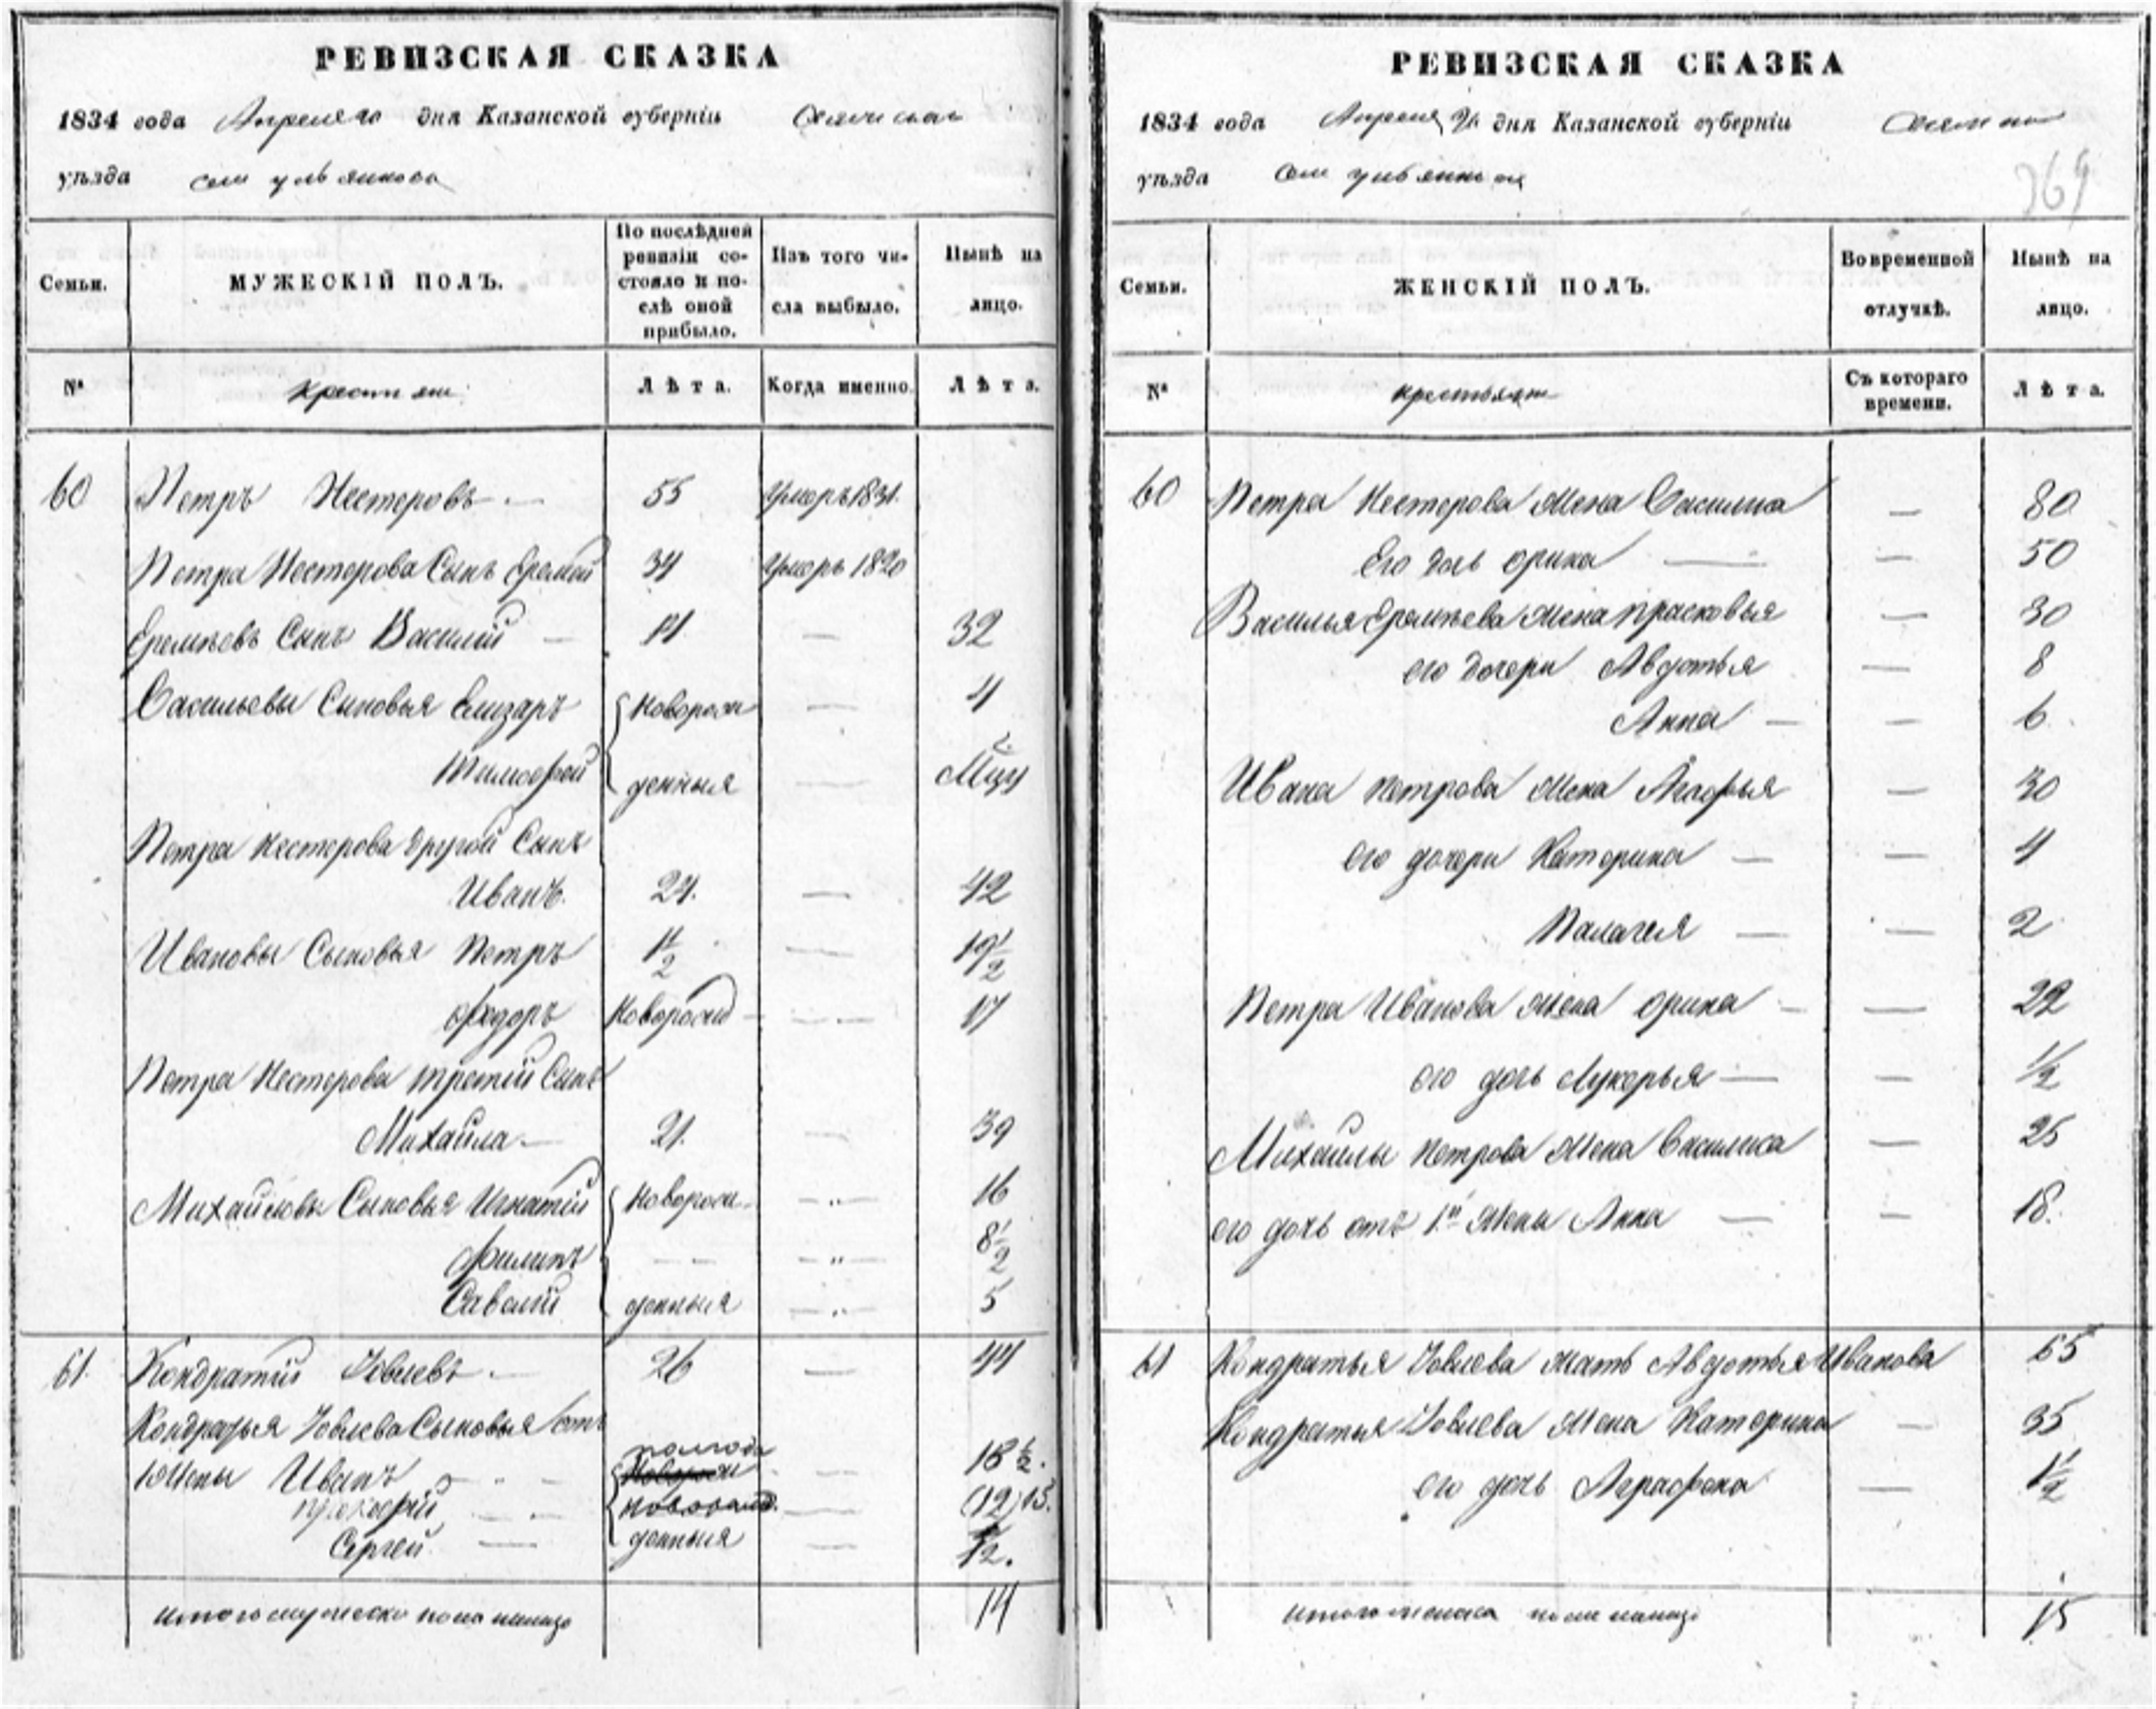 РЕВИЗСКАЯ СКАЗКА
1834 года Апреля дня Казанской губерніи
уѣзда села ульянкова
Семьи.
МУЖЕСКІЙ ПОЛЪ.
По послѣдней ревизіи состояло и послѣ оной прибыло.
Изъ того числа выбыло.
Нынѣ на лицо.
№
Лѣта.
Когда именно.
Лѣта.
60 Петръ Нестеровъ 55 Умеръ 1831.
Петра Нестерова Сынъ Еремей 34 Умеръ 1820
Еремѣевъ Сынъ Василій 14 — 32
Васильевы Сыновья Елизаръ Новорож — 4
Тимофей денныя —
Петра Нестерова другой Сынъ
Иванъ. 24. — 42
Ивановы Сыновья Петръ 1 1/2 — 19 1/2
Федоръ Новорожд — 17
Петра Нестерова третій Сынъ
Михайла 21. — 39
Михайловы Сыновья Игнатій Новорож — 16
Филипъ — — 8 1/2
Савелій денныя — 5
61. Кондратій Іовлевъ 26 — 44
Кондратья Іовлева Сыновья отъ
1й Жены Иванъ полгода — 18 1/2.
Прокофій — (12) 15.
Сергей денныя — 1/2.
итого мужеска пола налицо 14
РЕВИЗСКАЯ СКАЗКА
1834 года Апреля дня Казанской губерніи
уѣзда
369
Семьи.
ЖЕНСКІЙ ПОЛЪ.
Во временной отлучкѣ.
Нынѣ на лицо.
№
крестьяне
Съ котораго времени.
Лѣта.
60 Петра Нестерова Жена Василиса — 80
Его дочь Орина — 50
Василья Еремѣева Жена Прасковья — 30
его дочери Авдотья — 8
Анна — 6
Ивана Петрова Жена Агафья — 30
его дочери Катерина — 4
Палагея — 2
Петра Иванова Жена Орина — 22
его дочь Лукерья — 1/2
Михайлы Петрова Жена Василиса — 25
его дочь отъ 1й Жены Анна — 18.
61 Кондратья Іовлева Мать Авдотья Иванова 65
Кондратья Іовлева Жена Катерина — 35
его дочь Аграфена — 1 1/2
итого женска пола налицо 15